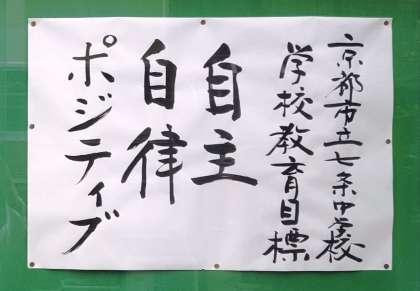 京都市立七条中学校
学校教育目標
自主
自律
ポジティブ